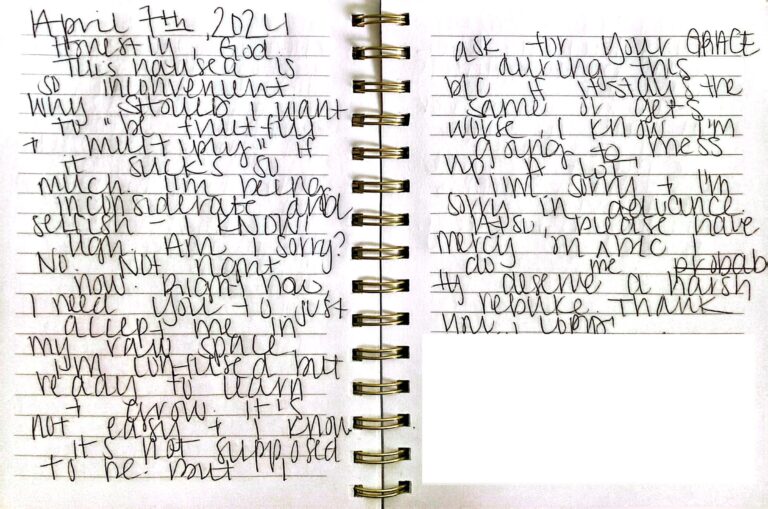 April 7th, 2024
Honestly, God.
This nausea is
so inconvenient
why should I want
to "be fruitful
+ multiply" if
it sucks so
much. I'm being
inconsiderate and
selfish - I KNOW!
Ugh. Am I sorry?
No. Not right
now. Right now,
I need you to just
accept me in
my raw space.
I'm confused but
ready to learn
+ grow. It's
not easy + I know
it's not supposed
to be. but I
ask for your GRACE
during this
b/c if it stays the
same or gets
worse, I know I'm
going to mess
up A LOT.
I'm sorry + I'm
sorry in advance.
Also, please have
mercy b/c I
do probab
ly deserve a harsh
rebuke. Thank
you, Lord!